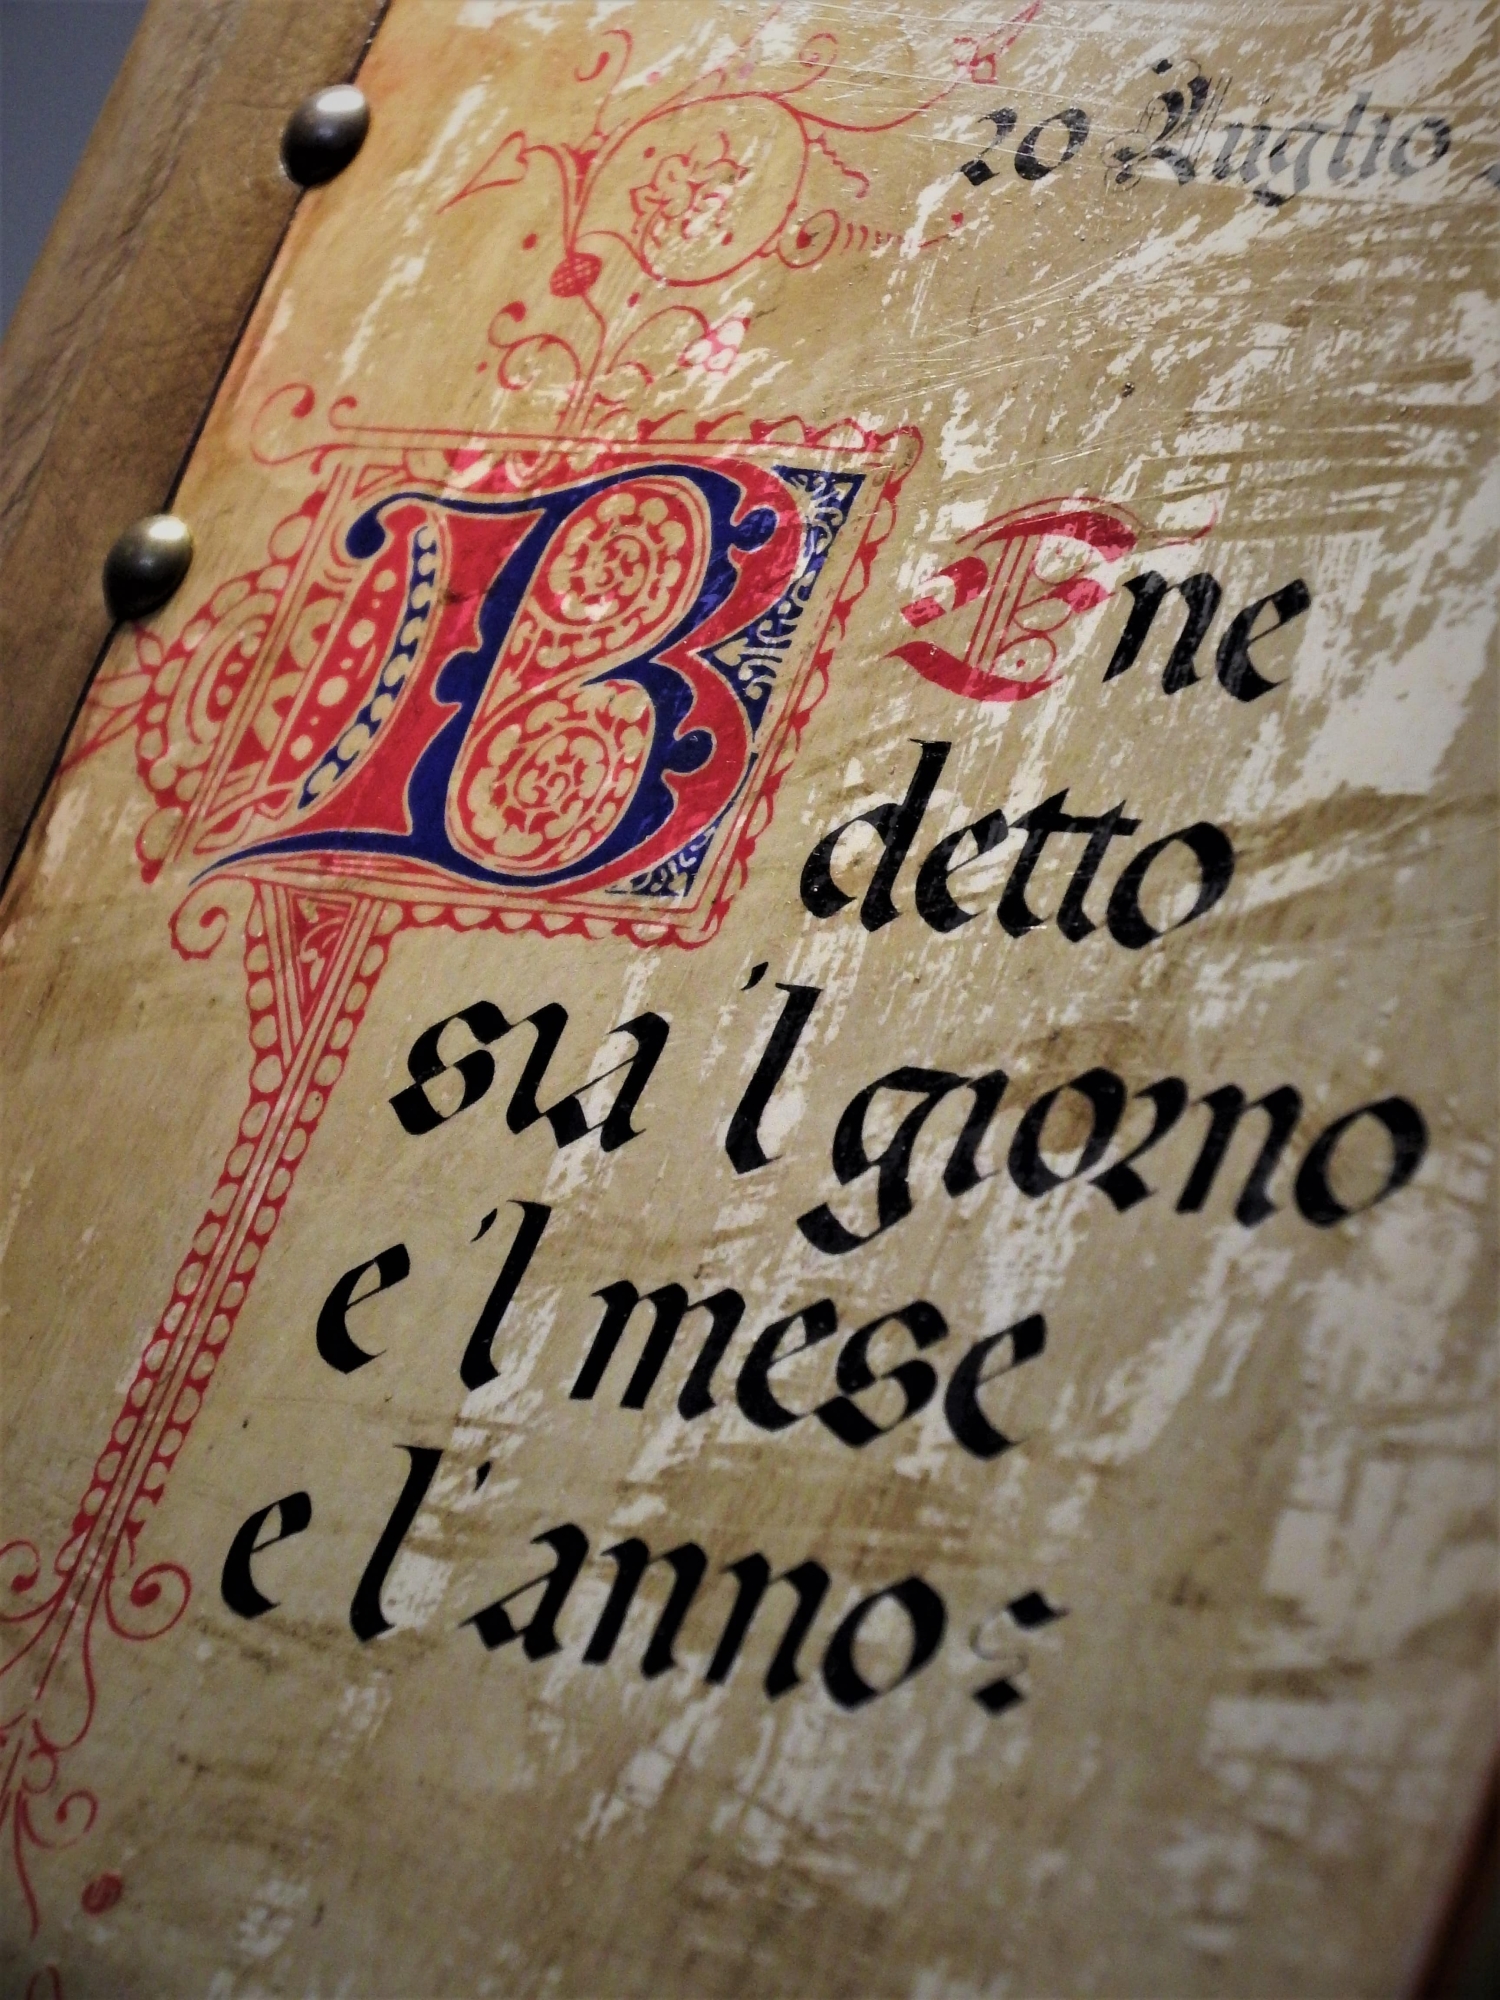 20 Luglio
BEne
detto
sia 'l giorno
e 'l mese
e l'anno: